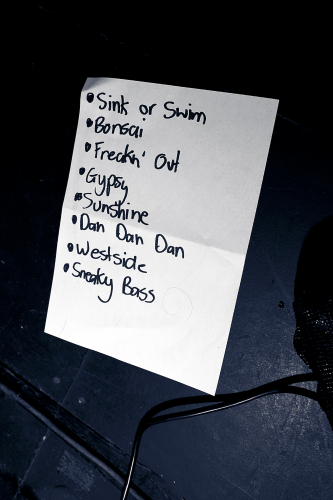 • Sink or Swim
• Bonsai
• Freakn' Out
• Gypsy
• Sunshine
• Dan Dan Dan
• Westside
• Sneaky Bass